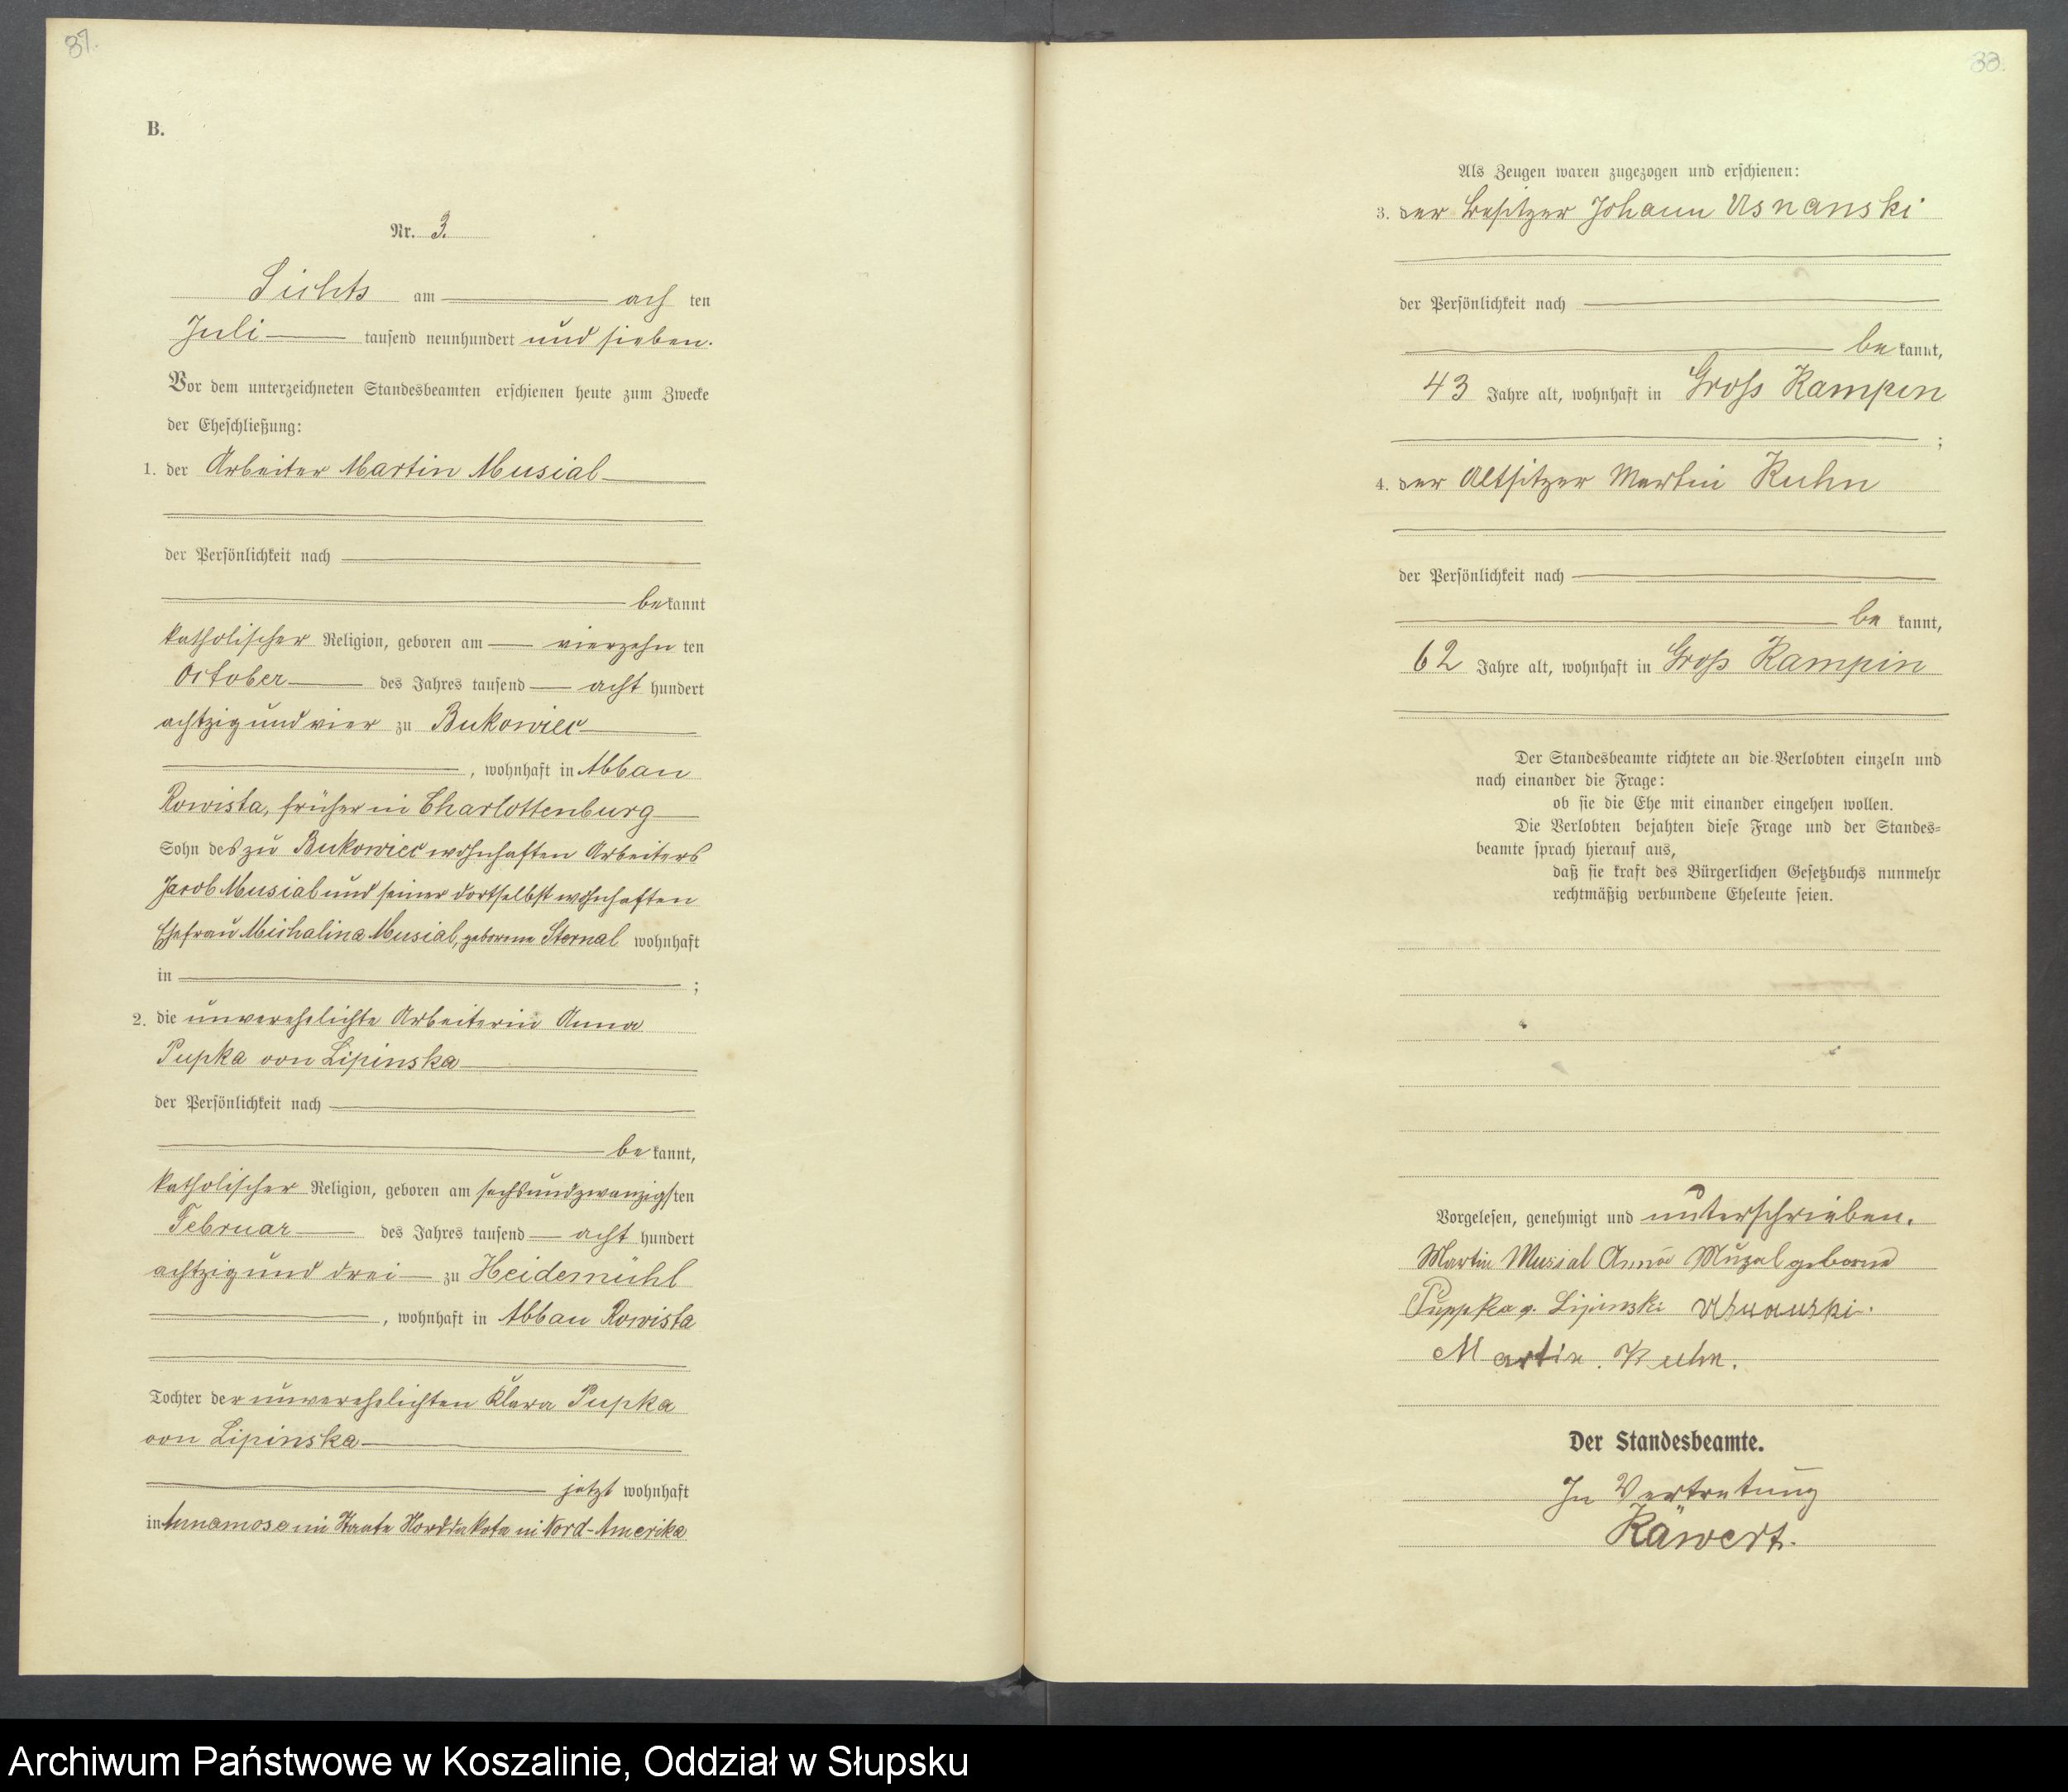 37.
B.
Nr. 3.
Lichts am ach ten
Juli tausend neunhundert und sieben.
Vor dem unterzeichneten Standesbeamten erschienen heute zum Zwecke
der Eheschließung:
1. der Arbeiter Martin Musial
der Persönlichkeit nach
bekannt
katholischer Religion, geboren am vierzehn ten
October des Jahres tausend acht hundert
achtzig und vier zu Bukowiec
, wohnhaft in Abbau
Rowista, früher in Charlottenburg
Sohn des zu Bukowiec wohnhaften Arbeiters
Jacob Musial und seiner dortselbst wohnhaften
Ehefrau Michalina Musial, geborene Sternal wohnhaft
in ;
2. die unverehelichte Arbeiterin Anna
Pupka von Lipinska
der Persönlichkeit nach
be kannt,
katholischer Religion, geboren am sechsundzwanzigsten
Februar des Jahres tausend acht hundert
achtzig und drei zu Heidemühl
, wohnhaft in Abbau Rowista
Tochter der unverehelichten Klara Pupka
von Lipinska
jetzt wohnhaft
in im Staate Norddakota in Nord-Amerika
33.
Als Zeugen waren zugezogen und erschienen:
3. der Besitzer Johann Usnanski
der Persönlichkeit nach
be kannt,
43 Jahre alt, wohnhaft in Gross Kampen
;
4. der Altsitzer Martin Kuhn
der Persönlichkeit nach
be kannt,
62 Jahre alt, wohnhaft in Gross Kampin
Der Standesbeamte richtete an die Verlobten einzeln und
nach einander die Frage:
ob sie die Ehe mit einander eingehen wollen.
Die Verlobten bejahten diese Frage und der Standes=
beamte sprach hierauf aus,
daß sie kraft des Bürgerlichen Gesetzbuchs nunmehr
rechtmäßig verbundene Eheleute seien.
Vorgelesen, genehmigt und unterschrieben.
Martin Musial Anna Muzal geborne
Puppka v. Lipinski Usnanski.
Martin. Kuhn.
Der Standesbeamte.
In Vertretung
Räwert.
Archiwum Państwowe w Koszalinie, Oddział w Słupsku